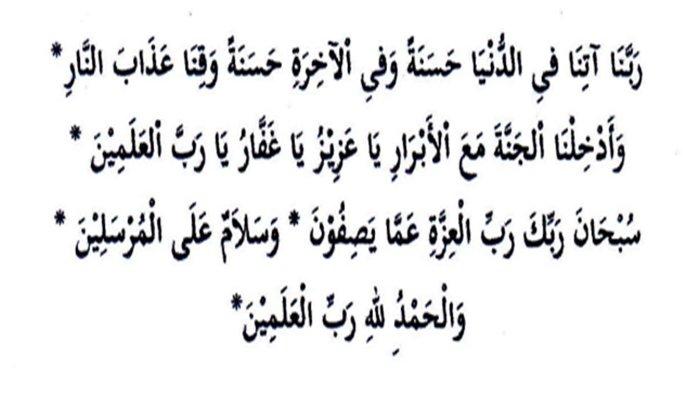 رَبَّنَا آتِنَا فِي الدُّنْيَا حَسَنَةً وَفِي الْآخِرَةِ حَسَنَةً وَقِنَا عَذَابَ النَّارِ *
وَأَدْخِلْنَا الْجَنَّةَ مَعَ الْأَبْرَارِ يَا عَزِيْزُ يَا غَفَّارُ يَا رَبَّ الْعَلَمِيْنَ *
سُبْحَانَ رَبِّكَ رَبِّ الْعِزَّةِ عَمَّا يَصِفُوْنَ * وَسَلَامٌ عَلَى الْمُرْسَلِيْنَ *
وَالْحَمْدُ لِلهِ رَبِّ الْعَلَمِيْنَ *